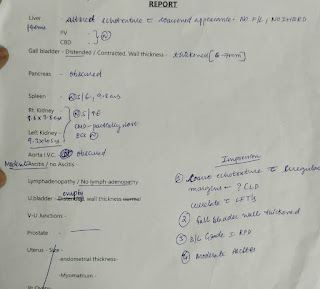 REPORT
Liver - altered echotexture c coarsened appearance. No F/L, No IHBRD
PV -
CBD - (N)
Gall bladder - Distended / Contracted. Wall thickness - thickened [6-7mm]
Pancreas - obscured
Spleen - (N) I/E, 9.8cms
Rt. Kidney - (N) I/PE
CMD - partially lost
Left Kidney -
Aorta I.V.C. obscured
Moderate Ascitis / no Ascitis -
Lymphadenopathy / No lymph adenopathy
empty
U.bladder - Distended, wall thickness normal
V-U Junctions -
Prostate -
Uterus - Size -
-endometrial thickness-
-Myometrium -
Impression
① Coarse echotexture c irregular
margins - ? CLD
correlate c LFT's
② Gall bladder wall thickened
③ B/L Grade I RPD
④ Moderate Ascites